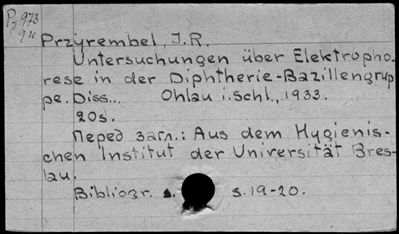 Pz 973
94
Przyrembel, J.R.
Untersuchungen über Elektropho-
rese in der Diphtherie-Bazillengrup
pe. Diss... Ohlau i. Schl., 1933.
20s.
Перед загл.: Aus dem Hygienis-
chen Institut der Universität Bres-
lau.
Bibliogr. s. s. 19-20.